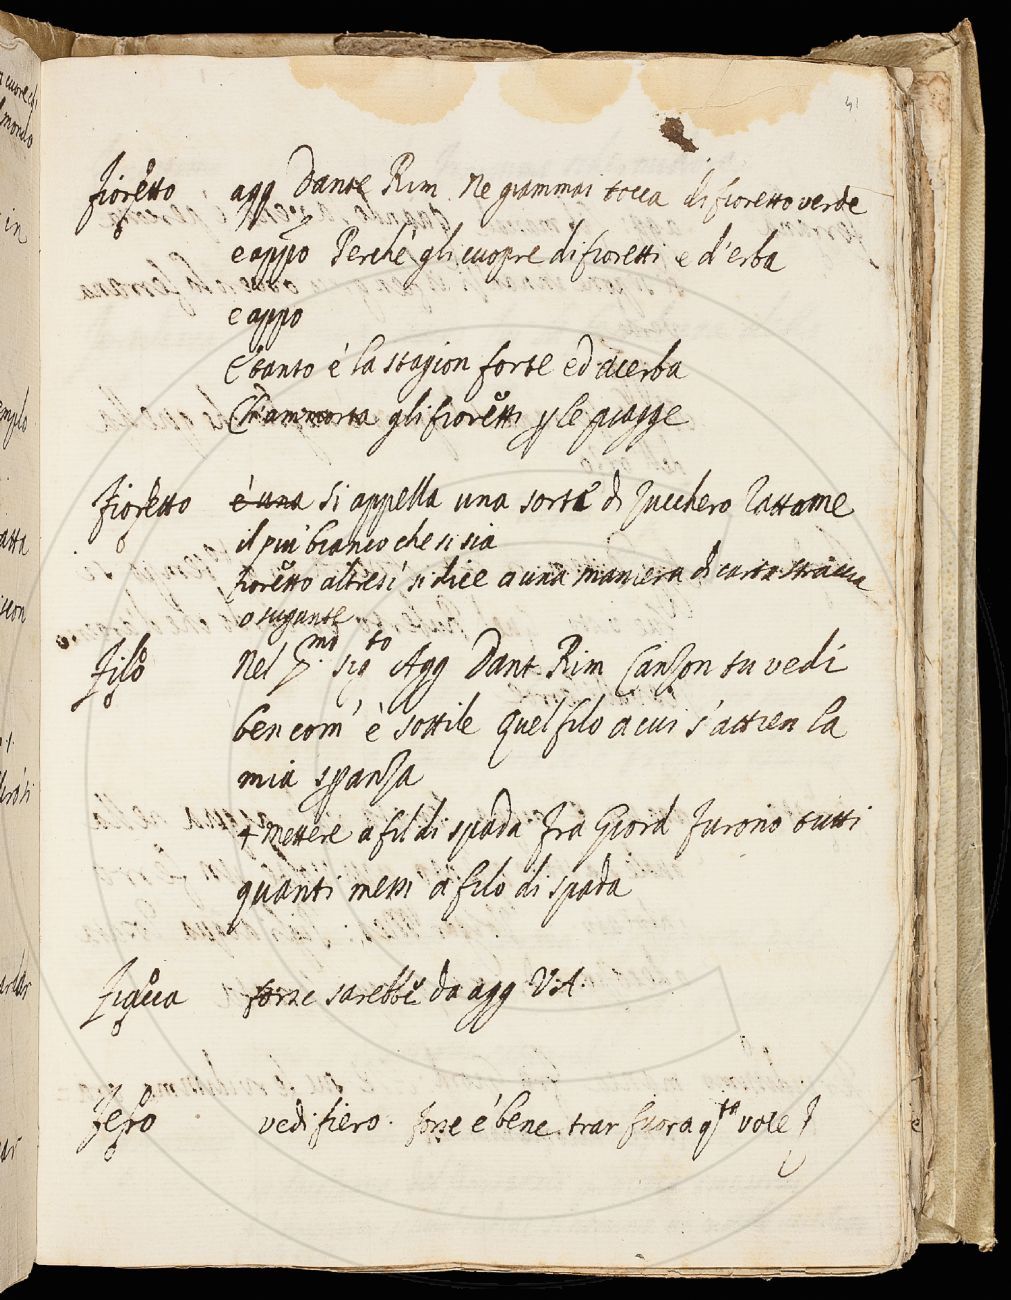 41
fioretto agg Dante Rim. Ne giammai tocca di fioretto verde
e appo Perché gli cuopre di fioretti e d'erba
e appo
E tanto è la stagion forte ed acerba
Ch'ammorta gli fioretti p le piagge
Fioretto è una si appella una sorta di Zucchero Zattame
il piu bianco che si sia
fioretto altresi si dice a una maniera di carta straccia
o sugante
Filo Nel p.mo sig.to Agg Dant. Rim Canzon tu vedi
ben com' è sottile quel filo a cui s'attien la
mia speranza
+ Mettere a fil di spada Fra Giord furono tutti
quanti messi a filo di spada
Ficcca forse sarebbe da agg V.A.
Fero vedi fiero. forse è bene trar fuora q.ta voce